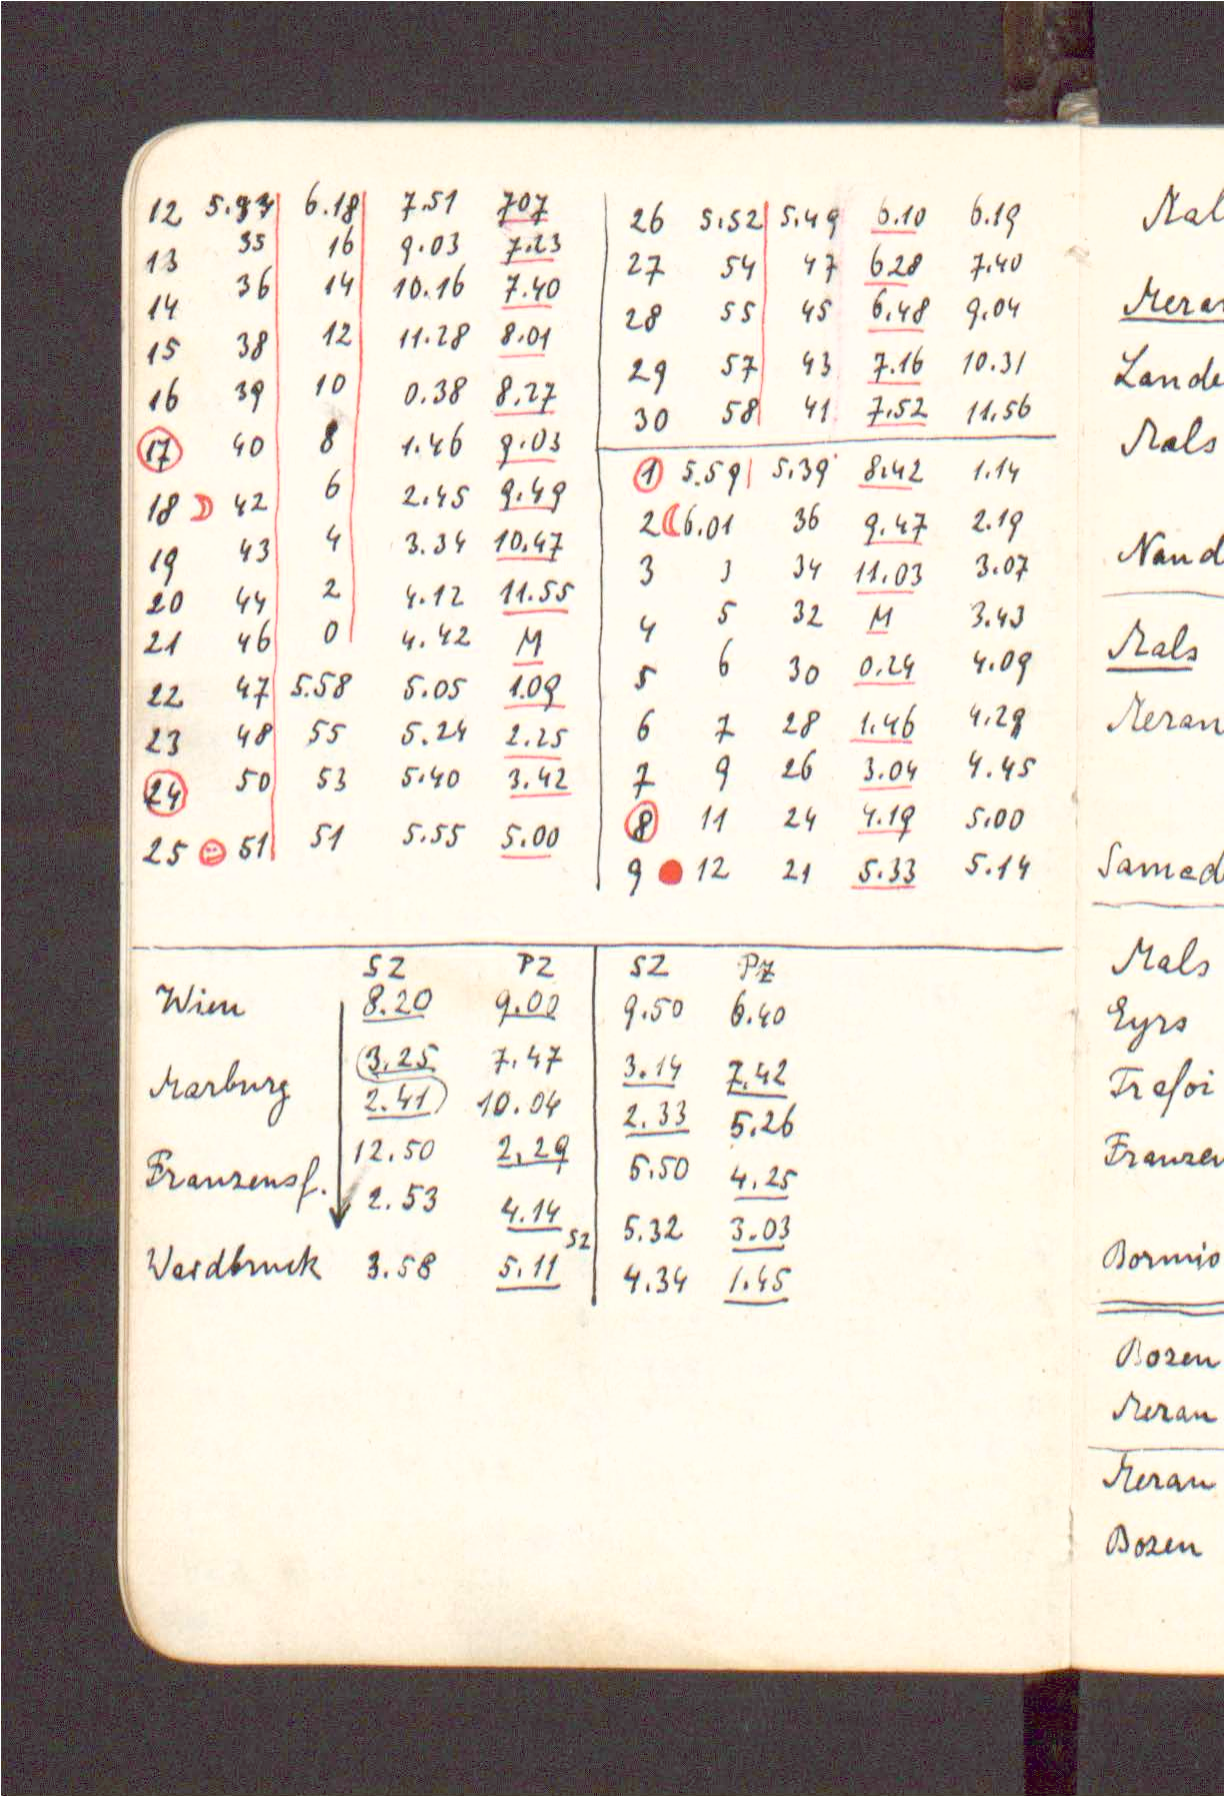 12 5.34 6.18 7.51 707
13 35 16 9.03 7.23
14 36 14 10.16 7.40
15 38 12 11.28 8.01
16 39 10 0.38 8.27
17 40 8 1.46 9.03
18 42 6 2.45 9.49
19 43 4 3.34 10.47
20 44 2 4.12 11.55
21 46 0 4.42 M
22 47 5.58 5.05 1.09
23 48 55 5.24 2.25
24 50 53 5.40 3.42
25 51 51 5.55 5.00
26 5.52 5.49 6.10 6.19
27 54 47 628 7.40
28 55 45 6.48 9.04
29 57 43 7.16 10.31
30 58 41 7.52 11.56
1 5.59 5.39 8.42 1.14
2 6.01 36 9.47 2.19
3 3 34 11.03 3.07
4 5 32 M 3.43
5 6 30 0.24 4.09
6 7 28 1.46 4.29
7 9 26 3.04 4.45
8 11 24 4.19 5.00
9 12 21 5.33 5.14
SZ PZ SZ PZ
Wien 8.20 9.00 9.50 6.40
3.25 7.47 3.14 7.42
Marburg
2.41 10.04 2.33 5.26
12.50 2.29 5.50 4.25
Franzensf.
2.53 4.14 5.32 3.03
SZ
Waidbruck 3.58 5.11 4.34 1.45
Mal
Meran
Lande
Mals
Naud
Mals
Meran
Samed
Mals
Eyrs
Trafoi
Franzen
Bormio
Bozen
Meran
Meran
Bozen